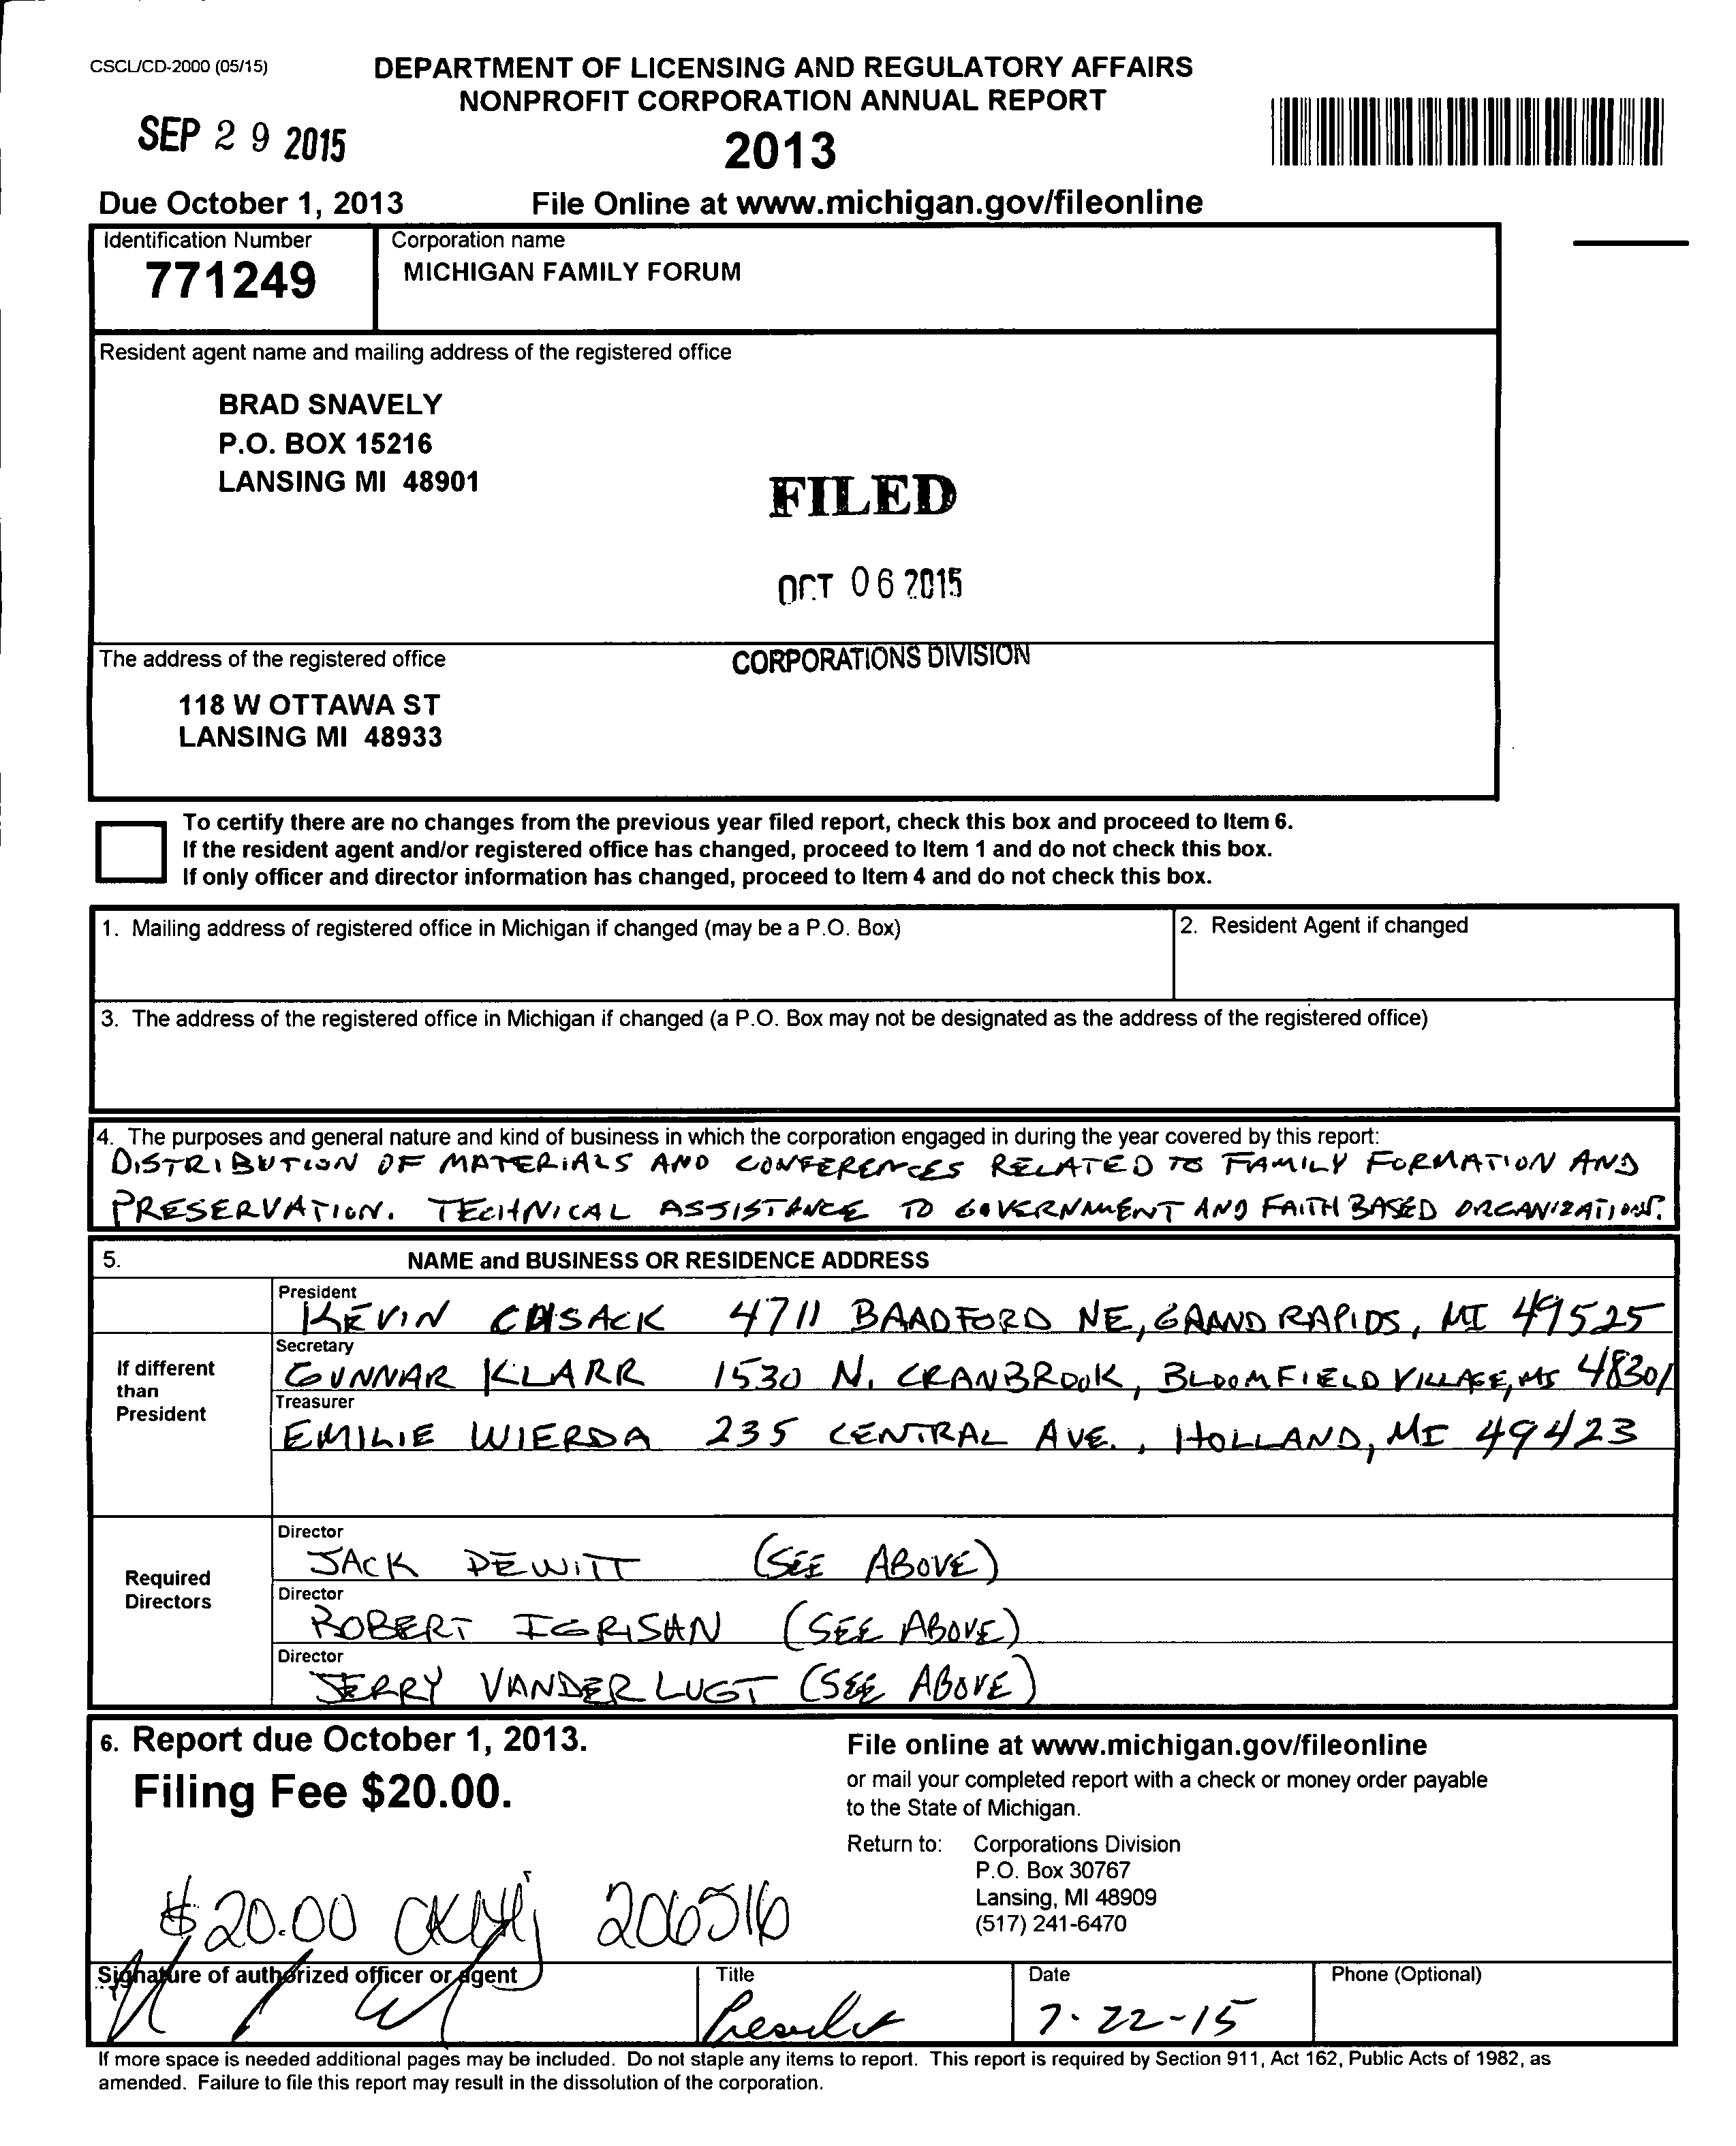 CSCL/CD-2000 (05/15)
DEPARTMENT OF LICENSING AND REGULATORY AFFAIRS
NONPROFIT CORPORATION ANNUAL REPORT
SEP 29 2015
2013
Due October 1, 2013 File Online at www.michigan.gov/fileonline
Identification Number
771249
Corporation name
MICHIGAN FAMILY FORUM
Resident agent name and mailing address of the registered office
BRAD SNAVELY
P.O. BOX 15216
LANSING MI 48901
FILED
OCT 06 2015
CORPORATIONS DIVISION
The address of the registered office
118 W OTTAWA ST
LANSING MI 48933
To certify there are no changes from the previous year filed report, check this box and proceed to Item 6.
If the resident agent and/or registered office has changed, proceed to Item 1 and do not check this box.
If only officer and director information has changed, proceed to Item 4 and do not check this box.
1. Mailing address of registered office in Michigan if changed (may be a P.O. Box)
2. Resident Agent if changed
3. The address of the registered office in Michigan if changed (a P.O. Box may not be designated as the address of the registered office)
4. The purposes and general nature and kind of business in which the corporation engaged in during the year covered by this report:
DISTRIBUTION OF MATERIALS AND CONFERENCES RELATED TO FAMILY FORMATION AND
PRESERVATION. TECHNICAL ASSISTANCE TO GOVERNMENT AND FAITH BASED ORGANIZATIONS.
5. NAME and BUSINESS OR RESIDENCE ADDRESS
President
KEVIN CUSACK 4711 BRADFORD NE, GRAND RAPIDS, MI 49525
If different
than
President
Secretary
GUNNAR KLARR 1530 N. CRANBROOK, BLOOMFIELD VILLAGE, MI 48301
Treasurer
EMILIE WIERDA 235 CENTRAL AVE., HOLLAND, MI 49423
Required
Directors
Director
JACK DEWITT (SEE ABOVE)
Director
ROBERT IGRISAN (SEE ABOVE)
Director
JERRY VANDER LUGT (SEE ABOVE)
6. Report due October 1, 2013.
Filing Fee $20.00.
File online at www.michigan.gov/fileonline
or mail your completed report with a check or money order payable
to the State of Michigan.
Return to: Corporations Division
P.O. Box 30767
Lansing, MI 48909
(517) 241-6470
$20.00 206516
Signature of authorized officer or agent
Title
President
Date
7-22-15
Phone (Optional)
If more space is needed additional pages may be included. Do not staple any items to report. This report is required by Section 911, Act 162, Public Acts of 1982, as
amended. Failure to file this report may result in the dissolution of the corporation.